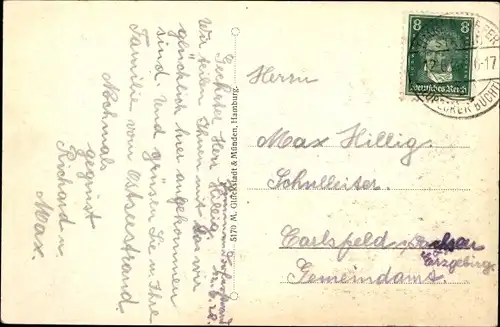 Geehrter Herr Hillig.
Wir teilen Ihnen mit das wir
glücklich hier angekommen
sind. Und grüsen Sie u. Ihre
Familie vom Ostseestrand
Nochmals
gegrüst
Richard u.
Max.
5170 M. Glückstadt & Münden, Hamburg.
8 8
Deutsches Reich
6-17
LÜBECKER BUCHT
Herrn
Max Hillig
Schulleiter.
Carlsfeld Sachsen
Erzgebirg.
Gemeindamt.